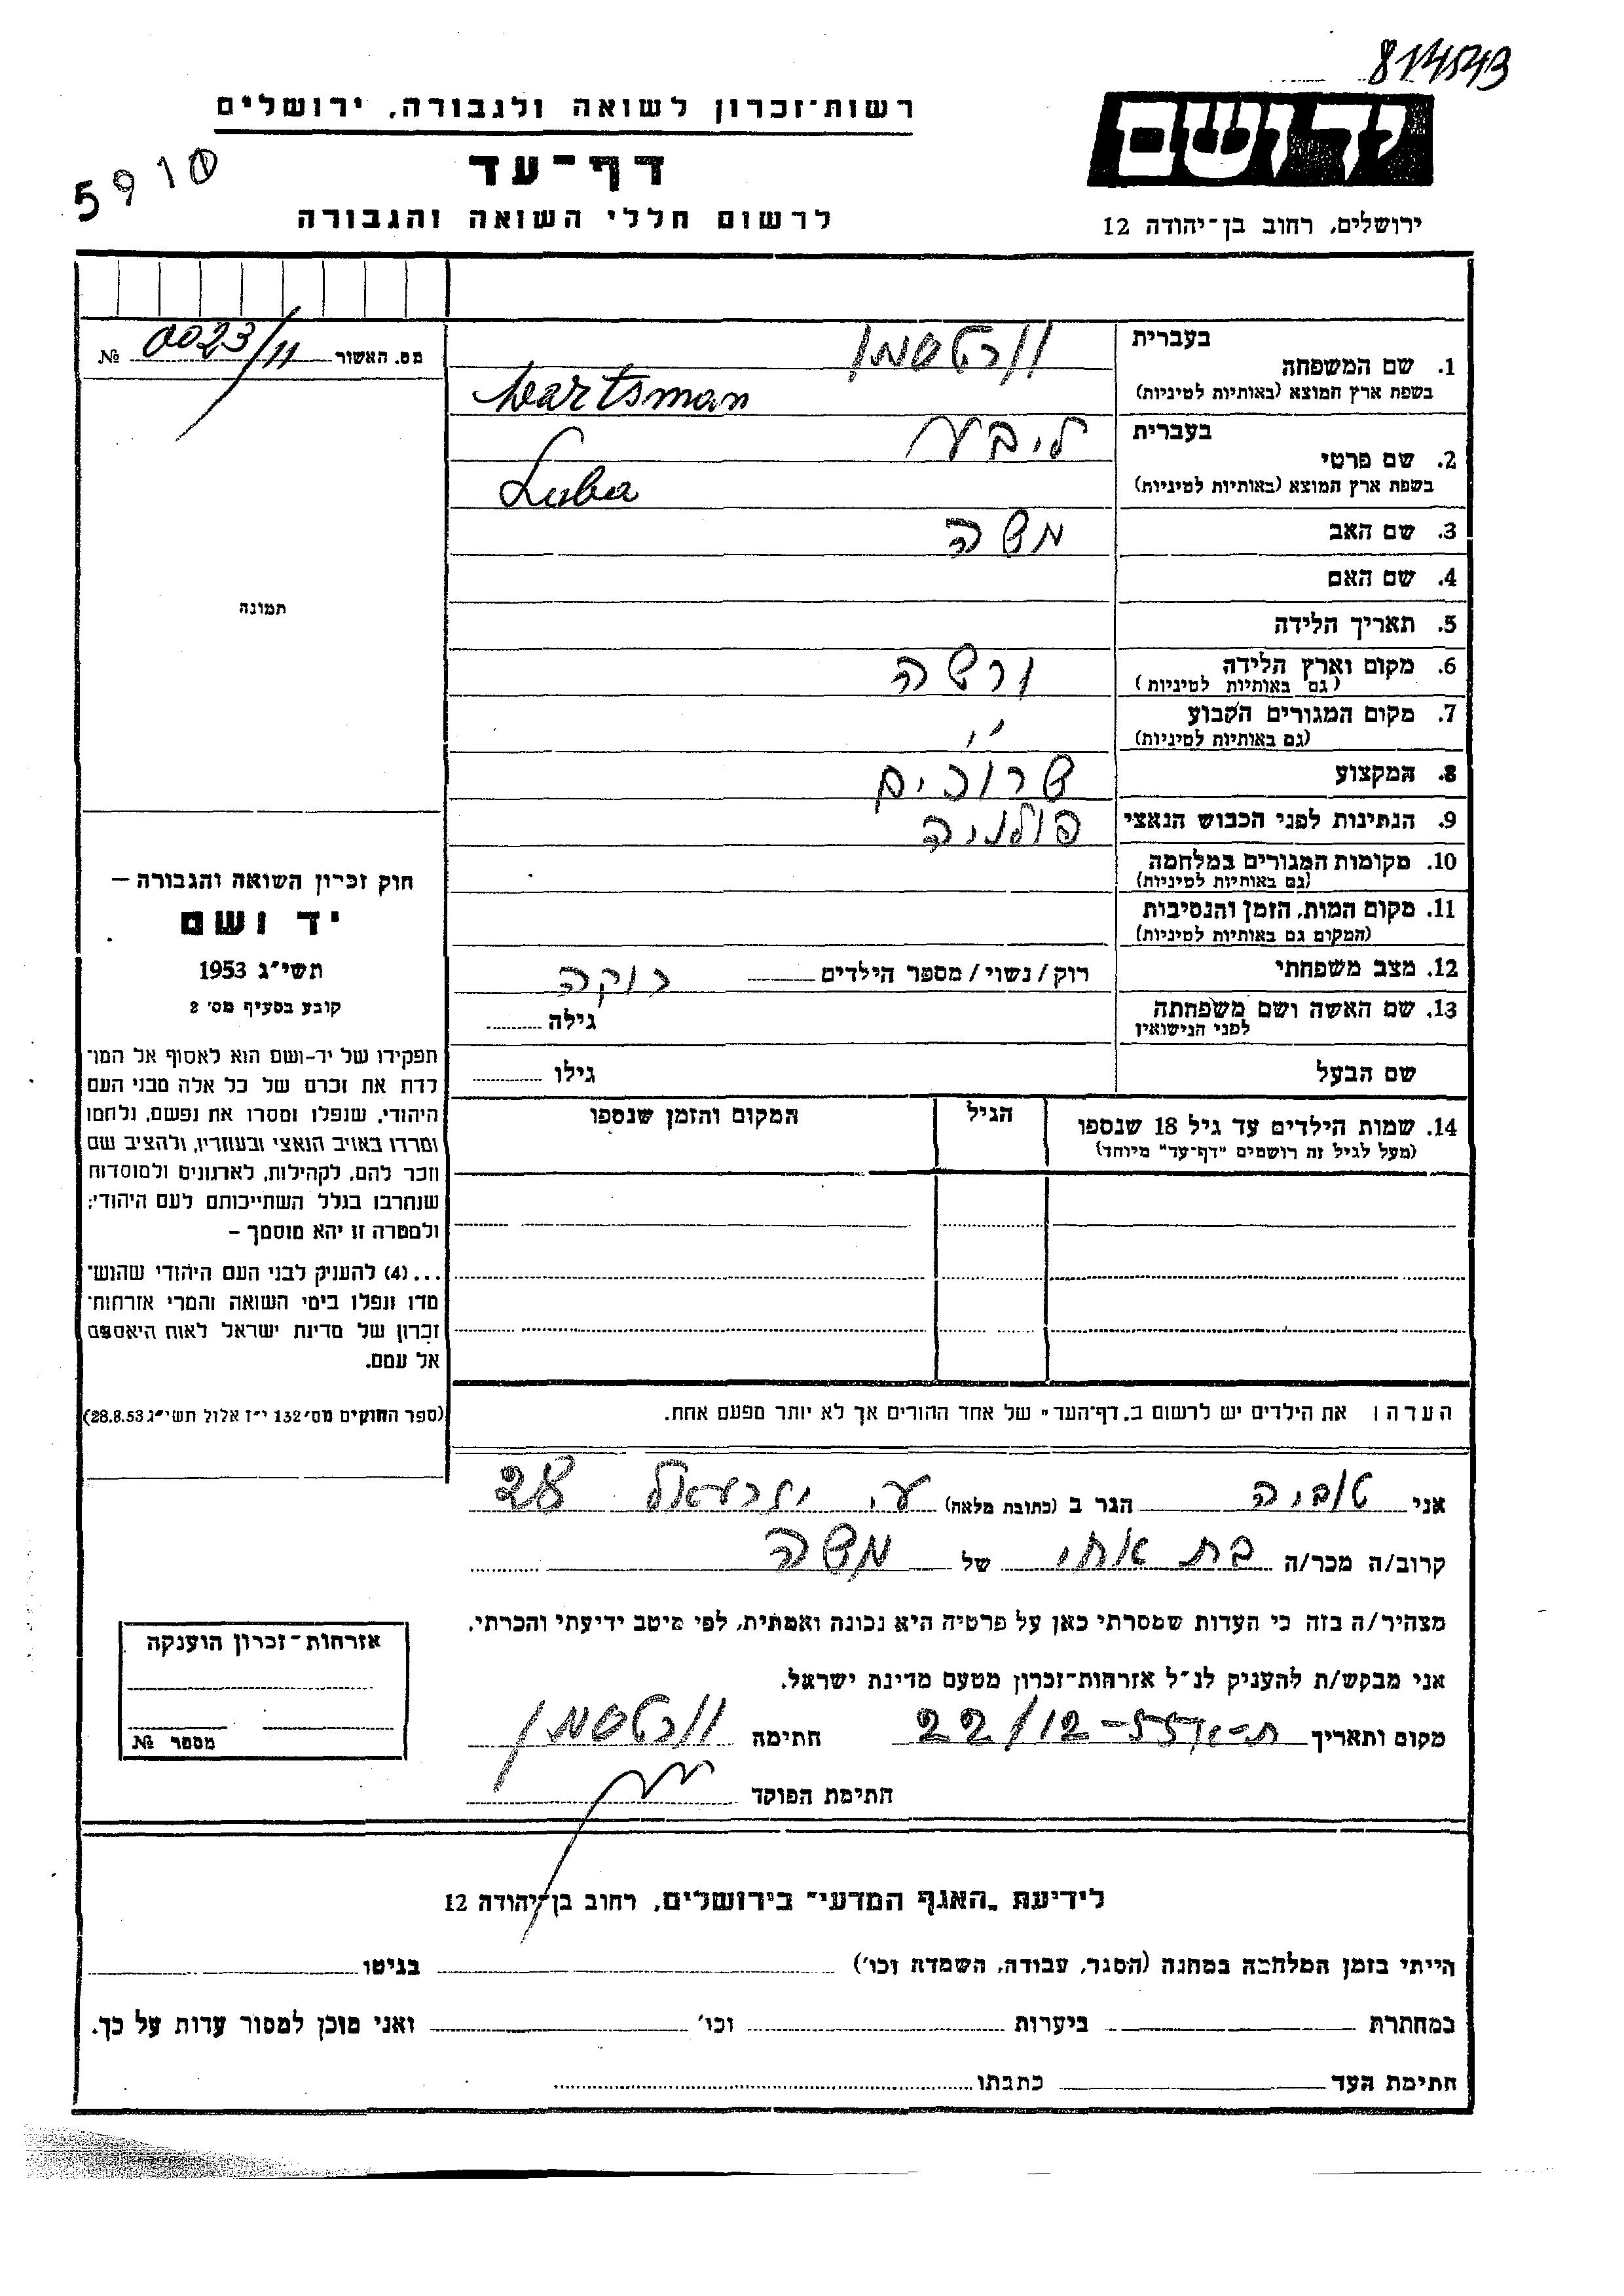 814543
רשות־זכרון לשואה ולגבורה, ירושלים
יד ושם
5910
דף־עד
לרשום חללי השואה והגבורה
ירושלים, רחוב בן־יהודה 12
מס. האשור 0023/11 №
1. שם המשפחה
בעברית ורטסמן
בשפת ארץ המוצא (באותיות לטיניות) Wartsman
2. שם פרטי
בעברית ליבע
בשפת ארץ המוצא (באותיות לטיניות) Luba
3. שם האב משה
4. שם האם
5. תאריך הלידה
6. מקום וארץ הלידה ורשה
(גם באותיות לטיניות)
7. מקום המגורים הקבוע "
(גם באותיות לטיניות)
8. המקצוע שרוכים
9. הנתינות לפני הכבוש הנאצי פולניה
10. מקומות המגורים במלחמה
(גם באותיות לטיניות)
11. מקום המות, הזמן והנסיבות
(המקום גם באותיות לטיניות)
12. מצב משפחתי רוק/נשוי/מספר הילדים רוקה
13. שם האשה ושם משפחתה
לפני הנישואין
גילה
שם הבעל גילו
14. שמות הילדים עד גיל 18 שנספו
(מעל לגיל זה רושמים "דף־עד" מיוחד)
הגיל
המקום והזמן שנספו
הערה: את הילדים יש לרשום ב„דף־העד" של אחד ההורים אך לא יותר מפעם אחת.
תמונה
חוק זכרון השואה והגבורה —
יד ושם
תשי"ג 1953
קובע בסעיף מס' 2
תפקידו של יד-ושם הוא לאסוף אל המו־
לדת את זכרם של כל אלה מבני העם
היהודי, שנפלו ומסרו את נפשם, נלחמו
ומרדו באויב הנאצי ובעוזריו, ולהציב שם
וזכר להם, לקהילות, לארגונים ולמוסדות
שנחרבו בגלל השתייכותם לעם היהודי;
ולמטרה זו יהא מוסמך —
...(4) להעניק לבני העם היהודי שהוש־
מדו ונפלו בימי השואה והמרי אזרחות־
זכרון של מדינת ישראל לאות היאספם
אל עמם.
(ספר החוקים מס' 132 י"ז אלול תשי"ג 28.8.53)
אני טוביה הגר ב (כתובת מלאה) ע. יזרעאל 28
קרוב/ה מכר/ה בת אחי של משה
מצהיר/ה בזה כי העדות שמסרתי כאן על פרטיה היא נכונה ואמתית, לפי מיטב ידיעתי והכרתי.
אני מבקש/ת להעניק לנ"ל אזרחות־זכרון מטעם מדינת ישראל.
מקום ותאריך ת-א 22/12-55 חתימה ורטסמן
חתימת הפוקד
אזרחות־זכרון הוענקה
מספר №
לידיעת „האגף המדעי" בירושלים, רחוב בן־יהודה 12
הייתי בזמן המלחמה במחנה (הסגר, עבודה, השמדה וכו') בגיטו
במחתרת ביערות וכו' ואני מוכן למסור עדות על כך.
חתימת העד כתבתו